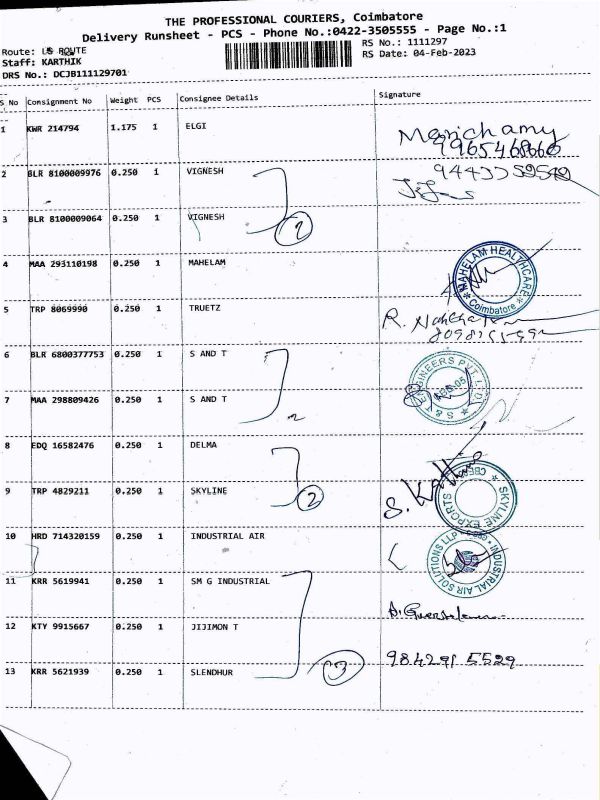 THE PROFESSIONAL COURIERS, Coimbatore
Delivery Runsheet - PCS - Phone No.:0422-3505555 - Page No.:1
Route: LS ROUTE
RS No.: 1111297
Staff: KARTHIK
RS Date: 04-Feb-2023
DRS No.: DCJB111129701
S No Consignment No Weight PCS Consignee Details Signature
1 KWR 214794 1.175 1 ELGI
Manichamy
9965468660
2 BLR 8100009976 0.250 1 VIGNESH
3 BLR 8100009064 0.250 1 VIGNESH
2
4 MAA 293110198 0.250 1 MAHELAM
MAHELAM HEALTHCARE
Coimbatore
5 TRP 8069990 0.250 1 TRUETZ
R.
6 BLR 6800377753 0.250 1 S AND T
S & T ENGINEERS PVT LTD
7 MAA 298809426 0.250 1 S AND T
2
8 EDQ 16582476 0.250 1 DELMA
9 TRP 4829211 0.250 1 SKYLINE
2
SKYLINE EXPORTS
10 HRD 714320159 0.250 1 INDUSTRIAL AIR
INDUSTRIAL AIR SOLUTIONS LLP
11 KRR 5619941 0.250 1 SM G INDUSTRIAL
12 KTY 9915667 0.250 1 JIJIMON T
13 KRR 5621939 0.250 1 SLENDHUR
3
984291 5529